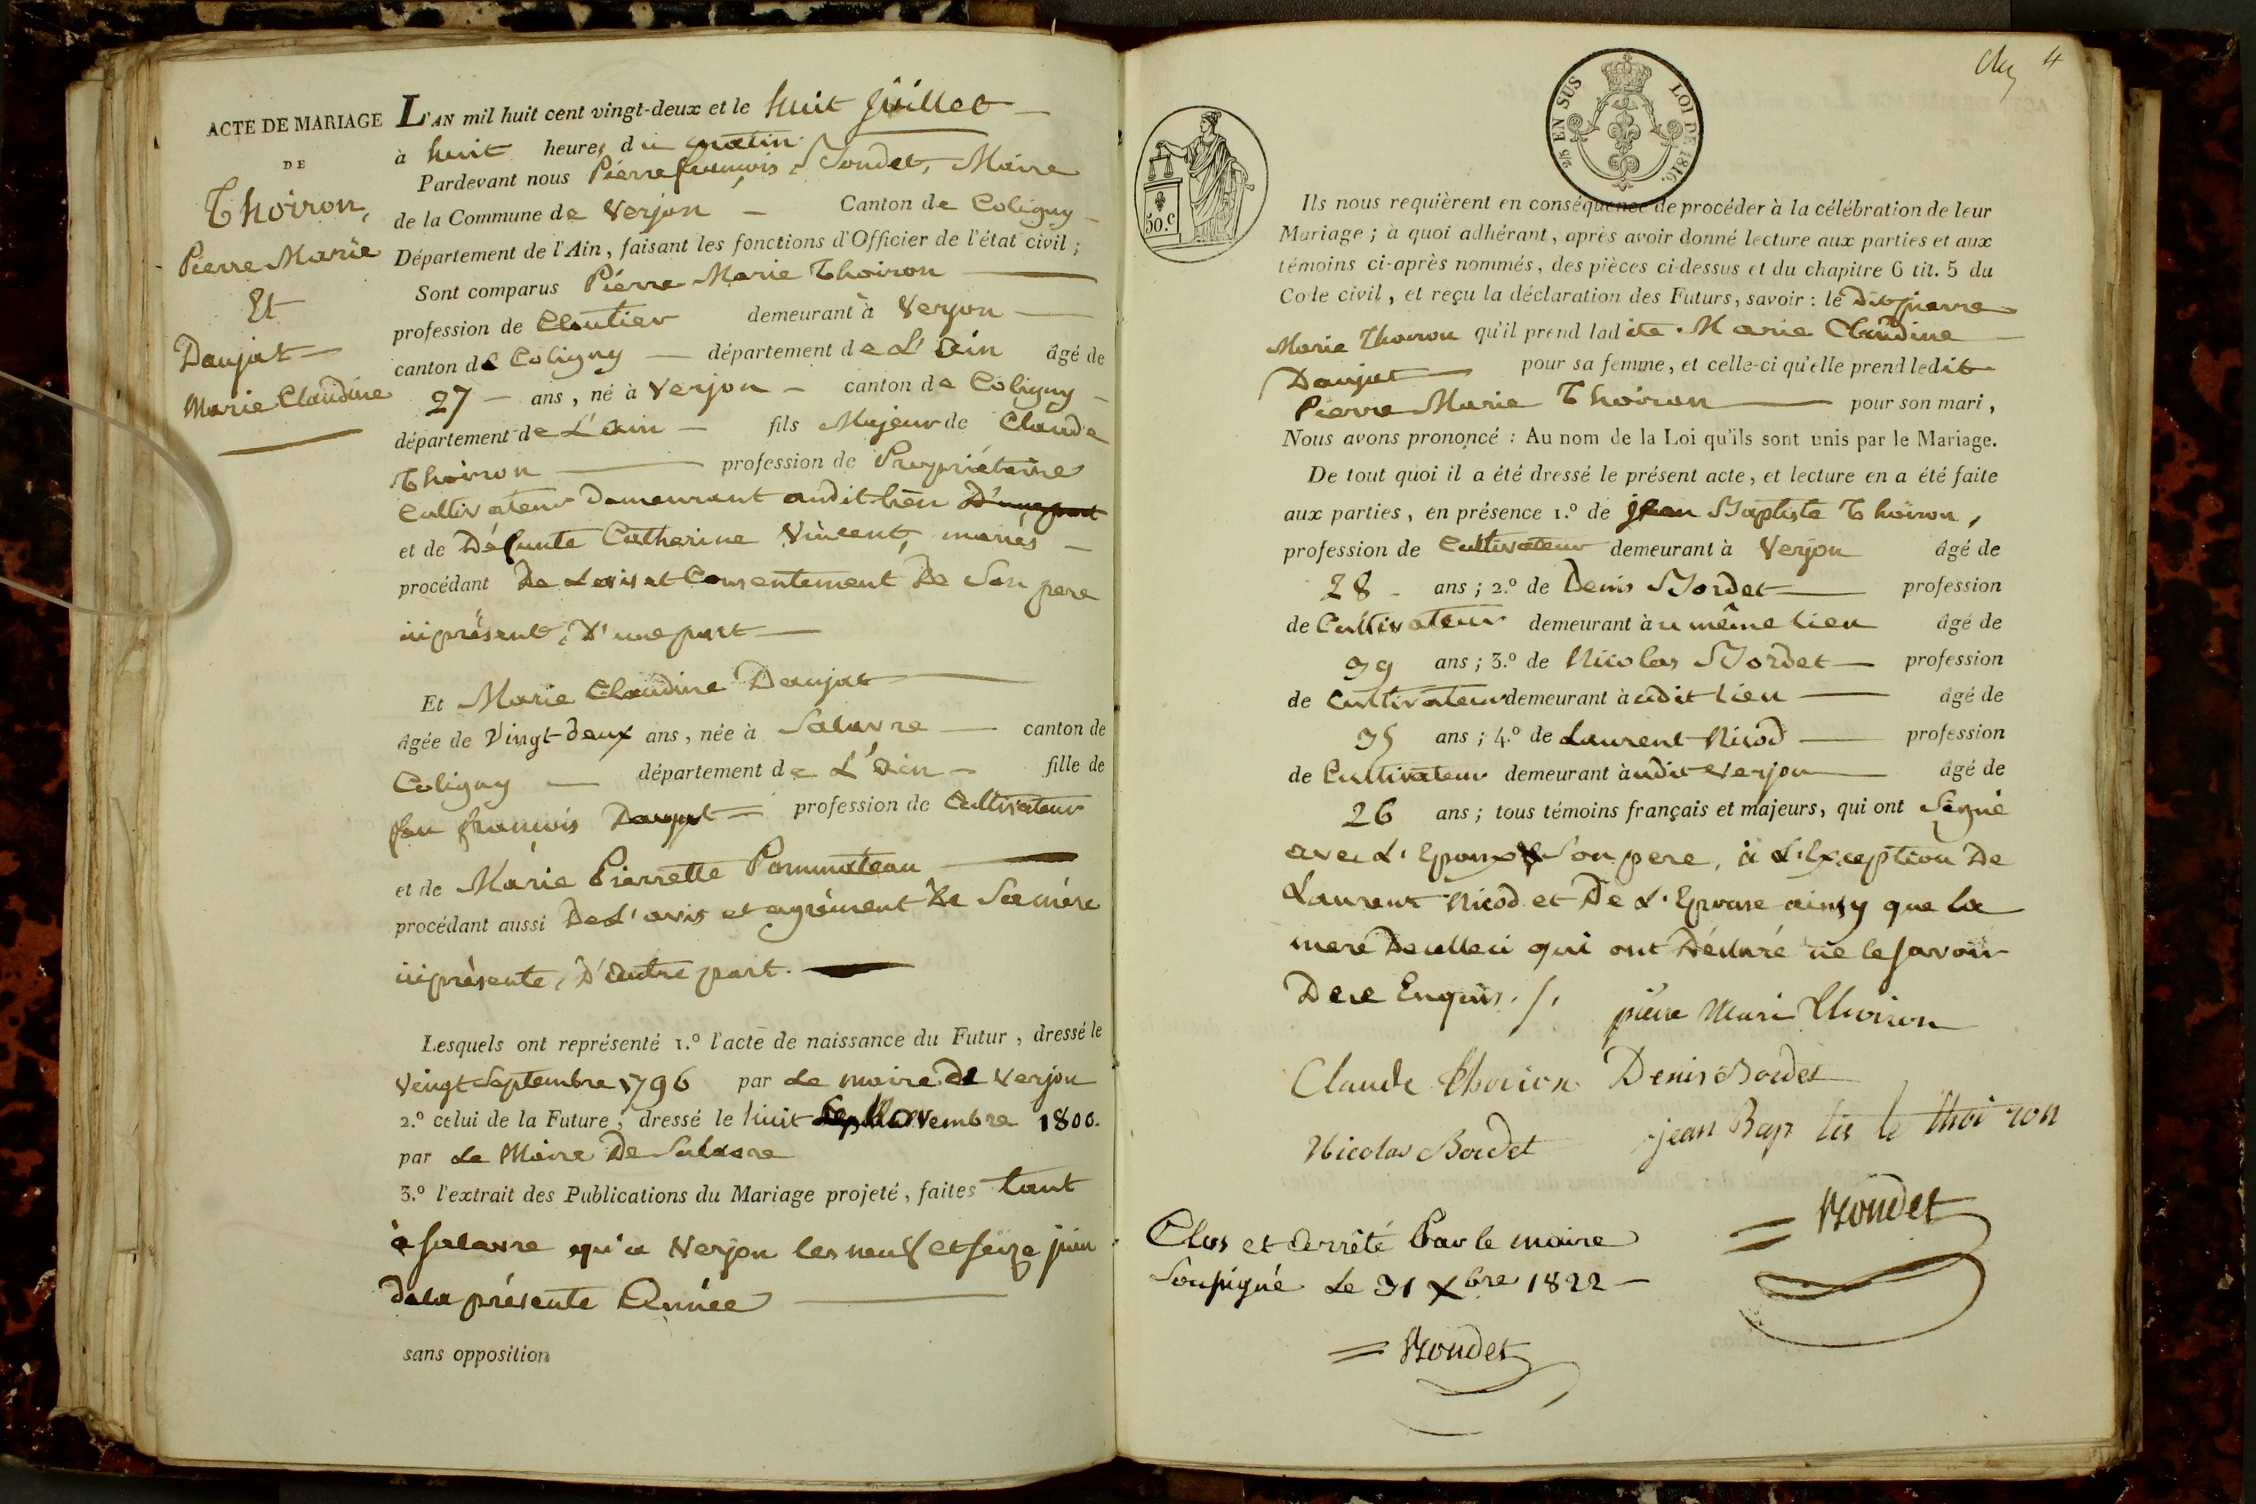 ACTE DE MARIAGE
DE
Thoiron,
Pierre Marie
Et
Daujat
Marie Claudine
L'AN mil huit cent vingt-deux et le huit Juillet
à huit heures du matin
Pardevant nous Pierre françois Bondet, Maire
de la Commune de Verjon Canton de Coligny
Département de l'Ain, faisant les fonctions d'Officier de l'état civil ;
Sont comparus Pierre Marie Thoiron
profession de Cloutier demeurant à Verjon
canton de Coligny département de L'Ain âgé de
27 ans, né à Verjon canton de Coligny
département de L'ain fils Majeur de Claude
Thoiron profession de Propriétaire
Cultivateur demeurant audit lieu D'une part
et de Défunte Catherine Vincent, mariés
procédant De Lavis et Consentement De Son pere
ici présent, D'une part
Et Marie Claudine Daujat
âgée de Vingt-deux ans, née à Salavre canton de
Coligny département de L'Ain fille de
feu françois Daujat profession de Cultivateur
et de Marie Pierrette Pommateau
procédant aussi De L'avis et agrément De Sa mére
ici présente, D'autre part.
Lesquels ont représenté 1.º l'acte de naissance du Futur, dressé le
Vingt Septembre 1796 par Le maire De Verjon
2.º celui de la Future, dressé le huit Novembre 1800.
par Le Maire De Salavre
3.º l'extrait des Publications du Mariage projeté, faites tant
à Salavre qu'a Verjon les neuf et seize juin
de la présente Année
sans opposition
4
EN SUS LOI DE 1816.
50.c
Ils nous requièrent en conséquence de procéder à la célébration de leur
Mariage ; à quoi adhérant, après avoir donné lecture aux parties et aux
témoins ci-après nommés, des pièces ci-dessus et du chapitre 6 tit. 5 du
Code civil, et reçu la déclaration des Futurs, savoir : le Dit pierre
Marie Thoiron qu'il prend ladite Marie Claudine
Daujat pour sa femme, et celle-ci qu'elle prend ledit
Pierre Marie Thoiron pour son mari,
Nous avons prononcé : Au nom de la Loi qu'ils sont unis par le Mariage.
De tout quoi il a été dressé le présent acte, et lecture en a été faite
aux parties, en présence 1.º de jean Baptiste Thoiron,
profession de Cultivateur demeurant à Verjon âgé de
28 ans ; 2.º de Denis Bordet profession
de Cultivateur demeurant au même lieu âgé de
39 ans ; 3.º de Nicolas Bordet profession
de Cultivateur demeurant audit lieu âgé de
35 ans ; 4.º de Laurent Nicod profession
de Cultivateur demeurant audit Verjon âgé de
26 ans ; tous témoins français et majeurs, qui ont Signé
avec L'Epoux & Son pere, à L'Exception De
Laurent Nicod et De L'Epouse ainsy que la
mere De celle ci qui ont Déclaré ne le savoir
De ce Enquis.
pierre Mari Thoiron
Claude Thoiron Denis Bordet
Nicolas Bordet jean Bap tis te thoi ron
Bondet
Clos et arrêté Par le maire
Soussigné Le 31 Xbre 1822
Bondet